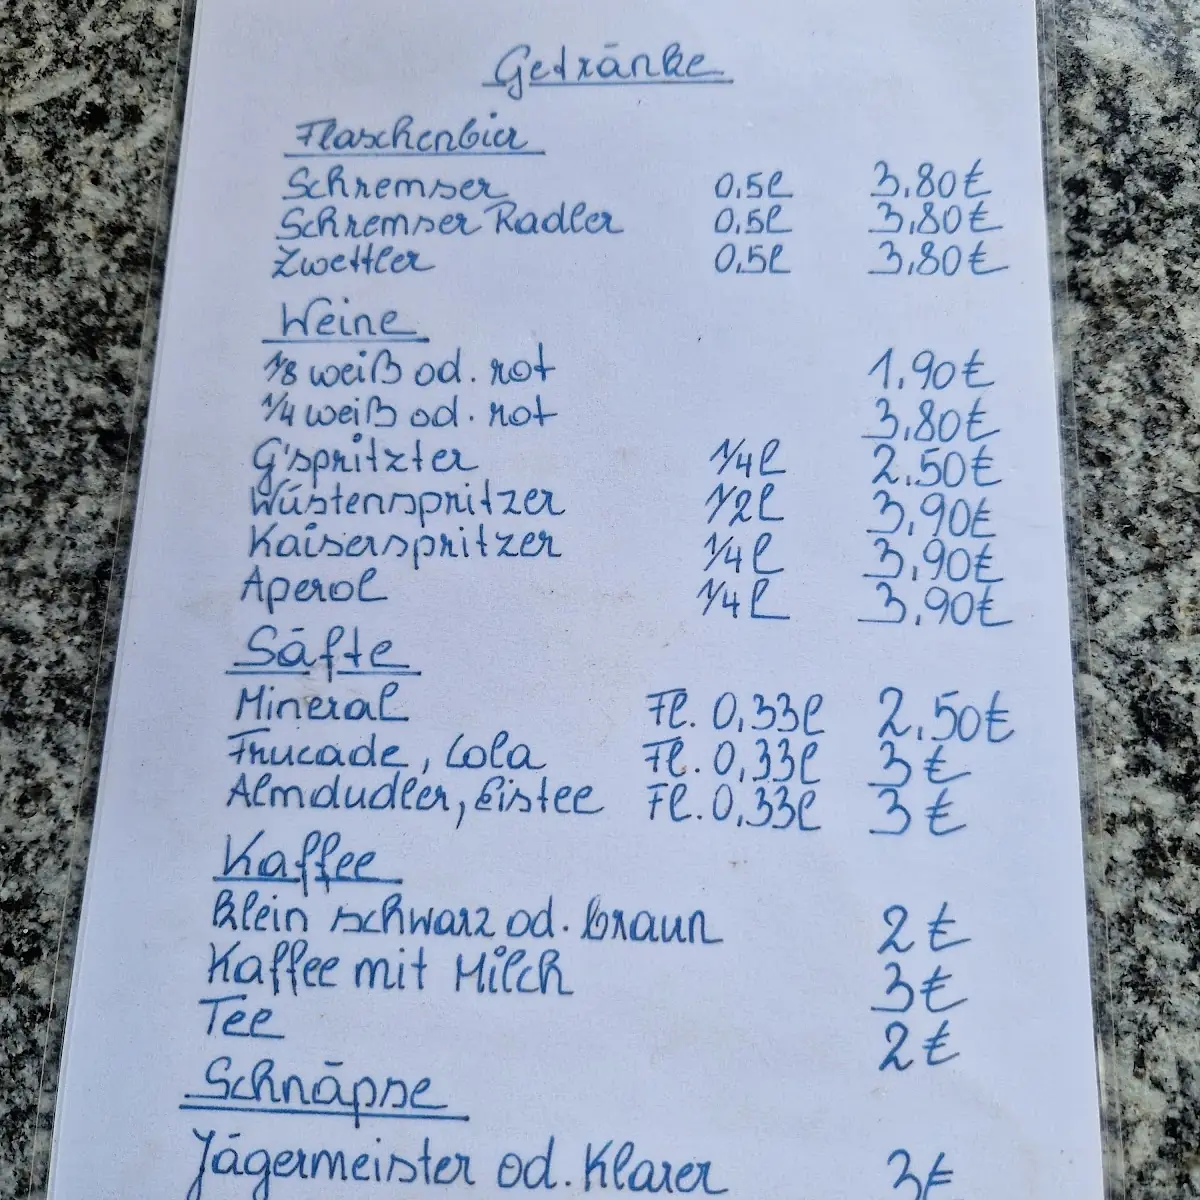 Getränke
Flaschenbier
Schremser 0,5l 3,80€
Schremser Radler 0,5l 3,80€
Zwettler 0,5l 3,80€
Weine
1/8 weiß od. rot 1,90€
1/4 weiß od. rot 3,80€
G'spritzter 1/4l 2,50€
Wüstenspritzer 1/2l 3,90€
Kaiserspritzer 1/4l 3,90€
Aperol 1/4l 3,90€
Säfte
Mineral Fl. 0,33l 2,50€
Frucade, Cola Fl. 0,33l 3€
Almdudler, Eistee Fl. 0,33l 3€
Kaffee
Klein schwarz od. braun 2€
Kaffee mit Milch 3€
Tee 2€
Schnäpse
Jägermeister od. Klarer 3€